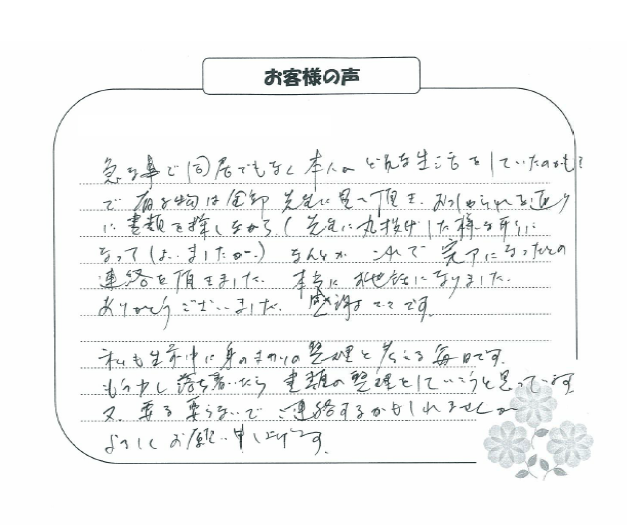 お客様の声
急な事で同居でもなく本人がどんな生活をしていたのかも
で有る物は全部先生に見て頂き、おっしゃられる通り
に書類を探しながら(先生に丸投げした様な形に
なってしまいましたが…)なんとかこれで完了になったとの
連絡を頂きました。本当にお世話になりました。
ありがとうございました。感謝です。
私も生前中に身のまわりの整理と考える毎日です。
もう少し落ち着いたら書類の整理をしていこうと思っています
又、要る要らないでご連絡するかもしれませんが
よろしくお願い申し上げます。